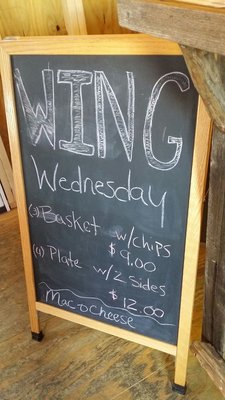 WING
Wednesday
(3) Basket w/chips
$9.00
(4) Plate w/2 sides
$12.00
Mac-o Cheese